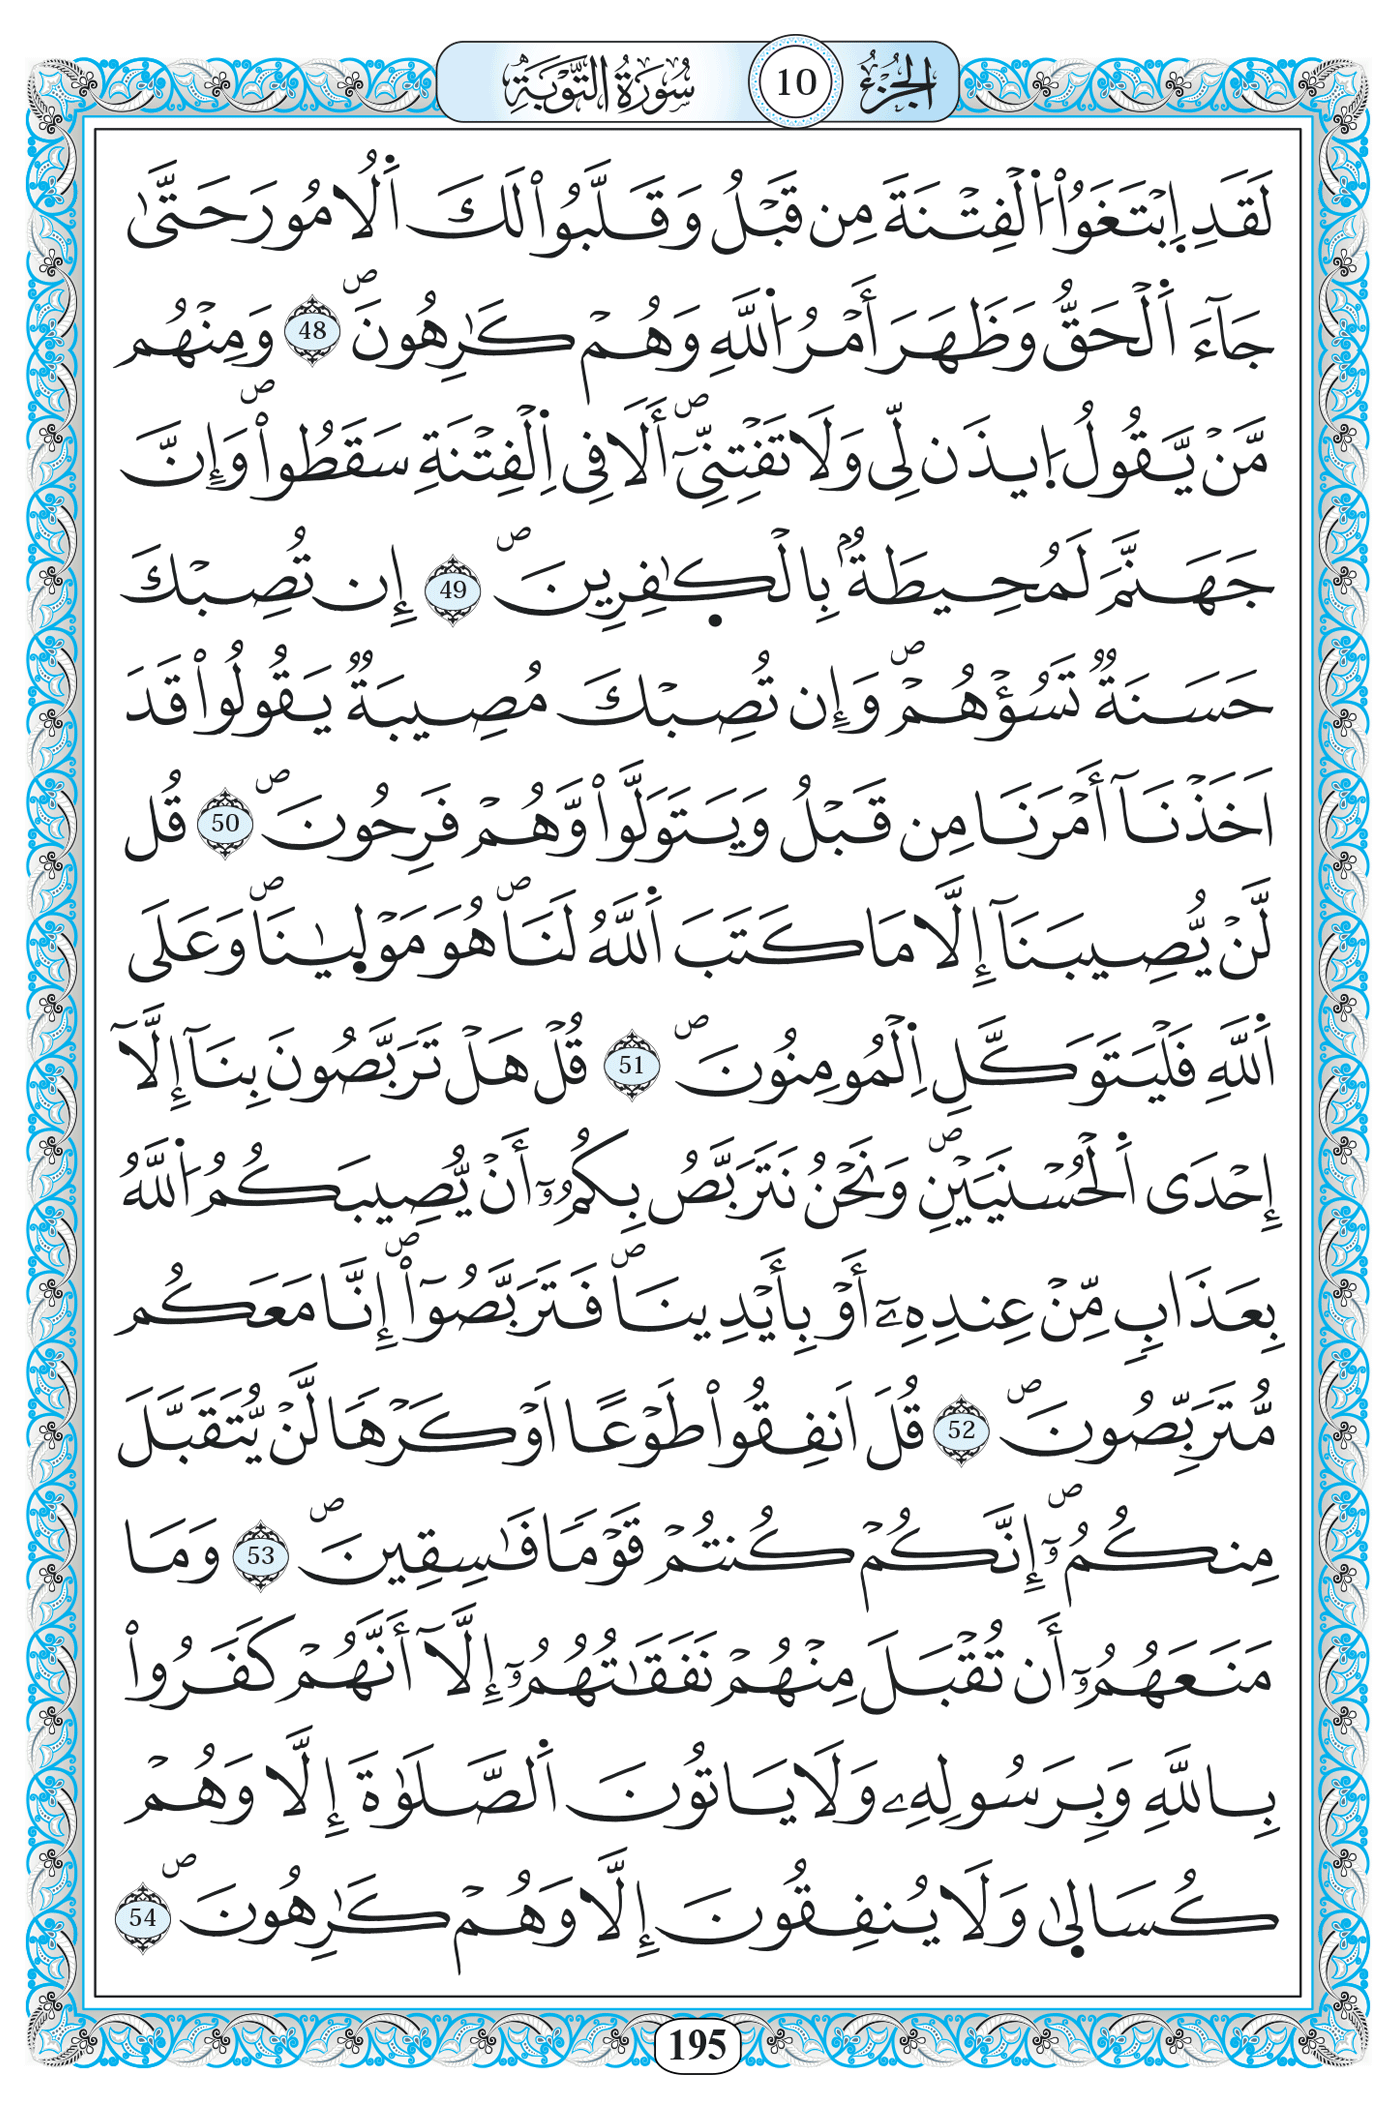 الجزء 10 سورة التوبة
لَقَدِ اِ۪بْتَغَوُاْ اُ۬لْفِتْنَةَ مِن قَبْلُ وَقَلَّبُواْ لَكَ اَ۬لُامُورَ حَتَّىٰ
جَآءَ اَ۬لْحَقُّ وَظَهَرَ أَمْرُ اُ۬للَّهِ وَهُمْ كَٰرِهُونَۖ 48 وَمِنْهُم
مَّنْ يَّقُولُ اُ۪يذَن لِّى وَلَا تَفْتِنِّىٓۖ أَلَا فِى اِ۬لْفِتْنَةِ سَقَطُواْۖ وَإِنَّ
جَهَنَّمَ لَمُحِيطَةُۢ بِالْكٰ۪فِرِينَۖ 49 إِن تُصِبْكَ
حَسَنَةٌ تَسُؤْهُمْۖ وَإِن تُصِبْكَ مُصِيبَةٌ يَقُولُواْ قَدَ
اَخَذْنَآ أَمْرَنَا مِن قَبْلُ وَيَتَوَلَّواْ وَّهُمْ فَرِحُونَۖ 50 قُل
لَّنْ يُّصِيبَنَآ إِلَّا مَا كَتَبَ اَ۬للَّهُ لَنَاۖ هُوَ مَوْل۪يٰنَاۖ وَعَلَى
اَ۬للَّهِ فَلْيَتَوَكَّلِ اِ۬لْمُومِنُونَۖ 51 قُلْ هَلْ تَرَبَّصُونَ بِنَآ إِلَّآ
إِحْدَى اَ۬لْحُسْنَيَيْنِۖ وَنَحْنُ نَتَرَبَّصُ بِكُمُۥٓ أَنْ يُّصِيبَكُمُ اُ۬للَّهُ
بِعَذَابٍ مِّنْ عِندِهِۦٓ أَوْ بِأَيْدِينَاۖ فَتَرَبَّصُوٓاْۖ إِنَّا مَعَكُم
مُّتَرَبِّصُونَۖ 52 قُلَ اَنفِقُواْ طَوْعًا اَوْ كَرْهًا لَّنْ يُّتَقَبَّلَ
مِنكُمُۥٓۖ إِنَّكُمْ كُنتُمْ قَوْمًا فَٰسِقِينَۖ 53 وَمَا
مَنَعَهُمُۥٓ أَن تُقْبَلَ مِنْهُمْ نَفَقَٰتُهُمُۥٓ إِلَّآ أَنَّهُمْ كَفَرُواْ
بِاللَّهِ وَبِرَسُولِهِۦ وَلَا يَاتُونَ اَ۬لصَّلَوٰةَ إِلَّا وَهُمْ
كُسَال۪ىٰ وَلَا يُنفِقُونَ إِلَّا وَهُمْ كَٰرِهُونَۖ 54
195